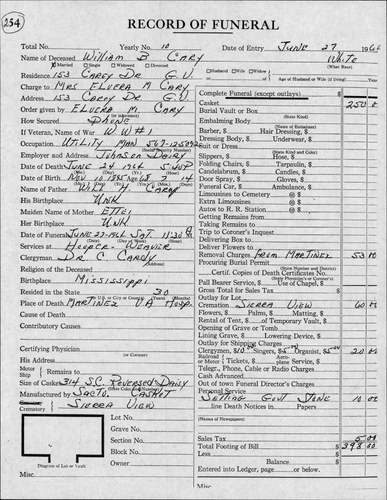 254
RECORD OF FUNERAL
Total No. Yearly No. 10 Date of Entry June 27 196
Name of Deceased William B Cary White
Married Single Widowed Divorced Husband Wife Widow of (What Race)
Residence 153 Carey Dr G.V. Age of Husband or Wife (if living) Year
Charge to Mrs Elvera M Cary Complete Funeral (except outlays) $
Address 153 Carey Dr G.V. Casket 250
Order given by Elvera M Cary Burial Vault or Box
How Secured Phone Embalming Body
If Veteran, Name of War W.W#1 Barber, $ Hair Dressing, $
Occupation Utility Man Dressing Body, $ Underwear, $
Employer and Address Johnson Dairy Suit or Dress
Date of Death June 24 Slippers, $ Hose, $
Date of Birth Nov 10 Folding Chairs, $ Tarpaulin, $
Name of Father Will M. Cary Candelabrum, $ Candles, $
His Birthplace Unk Door Spray, $ Gloves, $
Maiden Name of Mother Ettei Funeral Car, $ Ambulance, $
Her Birthplace Unk Limousines to Cemetery @ $
Extra Limousines @ $
Date of Funeral June 27-1966 Sat. 11:30 Autos to R. R. Station @ $
Services at Hooper Weaver Getting Remains from
Clergyman Dr. C Cardy Taking Remains to
Religion of the Deceased Trip to Coroner's Inquest
Birthplace Mississippi Delivering Box to
Resided in the State 30 Deliver Flowers to
Place of Death Martinez VA Hosp. Removal Charges from Martinez 53 00
Cause of Death Procuring Burial Permit
Contributory Causes Certif. Copies of Death Certificates No.
Pall Bearer Service, $ Use of Chapel, $
Gross Total for Sales Tax $
Outlay for Lot
Cremation Sierra View 60 00
Flowers, $ Palms, $ Matting, $
Rental of Tent, $ of Temporary Vault, $
Opening of Grave or Tomb
Lining Grave, $ Lowering Device, $
Certifying Physician Outlay for Shipping Charges
His Address Clergymen, $ 10 Singers, $ 5 Organist, $ 5 20 00
Motor Ship Remains to Tickets, $ Service, $
Telegr., Phone, Cable or Radio Charges
Cash Advanced
Size of Casket 314 S.C. Reversed Daisy Out of town Funeral Director's Charges
Manufactured by Sacto. Casket Personal Service
Crematory Sierra View Setting Govt Stone 10 00
line Death Notices in Papers
Lot No. (Names of Newspapers)
Grave No.
Section No. Sales Tax 5 00
Block No. Total Footing of Bill $ 398 00
Owner Less $
Diagram of Lot or Vault Balance $
Entered into Ledger, page or below.
Misc. Misc.